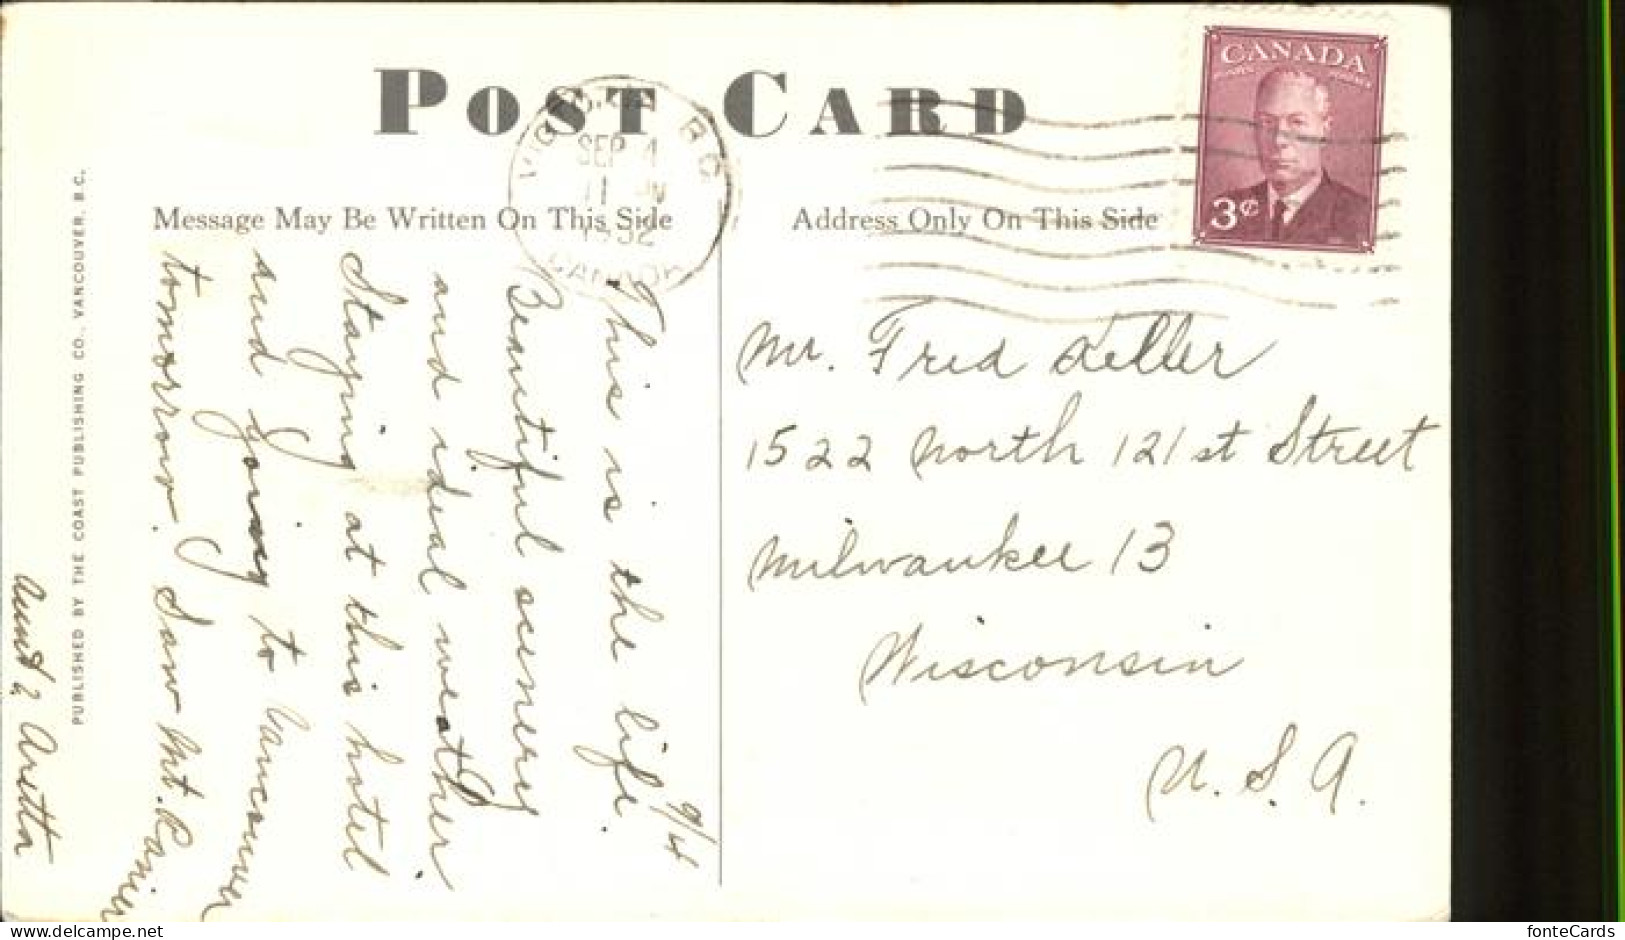 POST CARD
VICTORIA B.C.
SEP 4
11
1952
CANADA
CANADA
POSTES POSTAGE
3¢
Message May Be Written On This Side
Address Only On This Side
9/4
This is the life.
Beautiful scenery
and ideal weather.
Staying at this hotel
and going to Vancouver
tomorrow. Saw Mt. Ranier
Aunt Aretta
Mr. Fred Keller
1522 North 121st Street
Milwaukee 13
Wisconsin
U.S.A.
PUBLISHED BY THE COAST PUBLISHING CO., VANCOUVER, B.C.
fonteCards